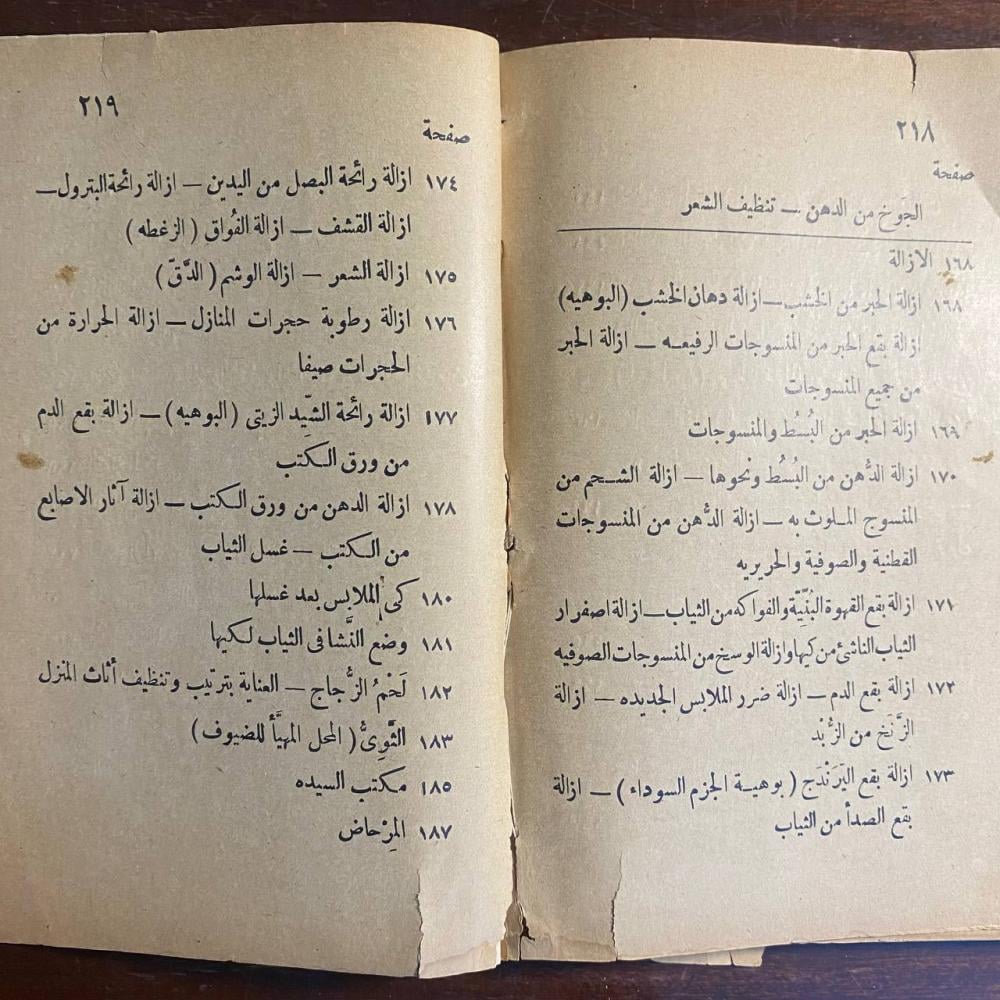 ٢١٨
صفحة
الجَوخ من الدهن — تنظيف الشعر
١٦٨ الازالة
١٦٨ ازالة الحبر من الخشب — ازالة دهان الخشب (البوهيه)
ازالة بقع الحبر من المنسوجات الرفيعه — ازالة الحبر
من جميع المنسوجات
١٦٩ ازالة الحبر من البُسُط والمنسوجات
١٧٠ ازالة الدُّهن من البُسُط ونحوها — ازالة الشحم من
المنسوج الملوث به — ازالة الدُّهن من المنسوجات
القطنية والصوفية والحريريه
١٧١ ازالة بقع القهوة البُنِّيَّة والفواكه من الثياب — ازالة اصفرار
الثياب الناشئ من كيها وازالة الوسخ من المنسوجات الصوفيه
١٧٢ ازالة بقع الدم — ازالة ضرر الملابس الجديده — ازالة
الزَّنَخ من الزُّبْد
١٧٣ ازالة بقع اليَرَنْدَج (بوهية الجزم السوداء) — ازالة
بقع الصدأ من الثياب
٢١٩
صفحة
١٧٤ ازالة رائحة البصل من اليدين — ازالة رائحة البترول —
ازالة القشف — ازالة الفُواق (الزغطه)
١٧٥ ازالة الشعر — ازالة الوشم (الدَّقّ)
١٧٦ ازالة رطوبة حجرات المنازل — ازالة الحرارة من
الحجرات صيفا
١٧٧ ازالة رائحة الشِّيد الزيتى (البوهيه) — ازالة بقع الدم
من ورق الكتب
١٧٨ ازالة الدهن من ورق الكتب — ازالة آثار الاصابع
من الكتب — غسل الثياب
١٨٠ كى الملابس بعد غسلها
١٨١ وضع النَّشا فى الثياب لكيها
١٨٢ لَحْمُ الزُّجاج — العناية بترتيب وتنظيف أثاث المنزل
١٨٣ الثَّوِىُّ (المحل المهيَّأ للضيوف)
١٨٥ مكتب السيده
١٨٧ المِرْحاض